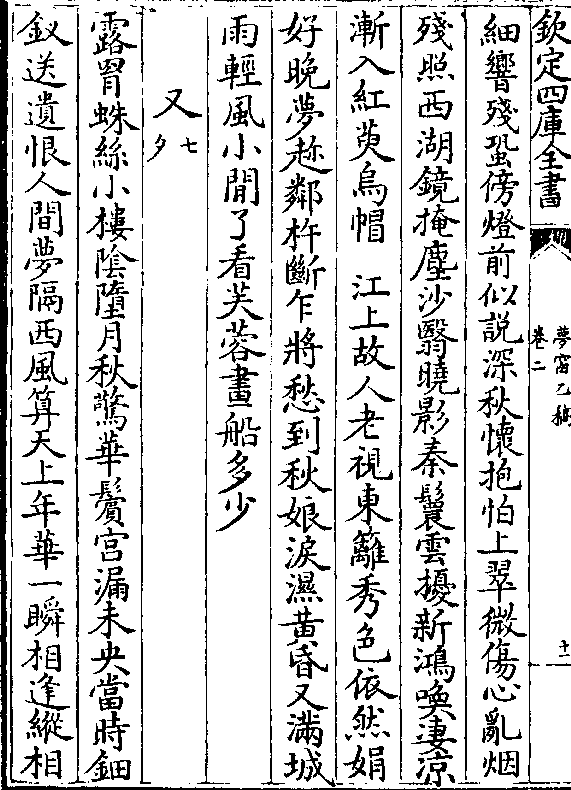 欽定四庫全書 夢窗乙稿 卷二 十一
細響殘蛩傍燈前似說深秋懷抱怕上翠微傷心亂烟
殘照西湖鏡掩塵沙翳曉影秦鬟雲擾新鴻喚凄涼
漸入紅萸烏帽　江上故人老視東籬秀色依然娟
好晚夢趂鄰杵斷乍將愁到秋娘淚濕黄昏又滿城
雨輕風小閒了看芙蓉畫船多少
又七夕
露罥蛛絲小樓陰墮月秋驚華鬢宮漏未央當時鈿
釵送遺恨人間夢隔西風算天上年華一瞬相逢縱相